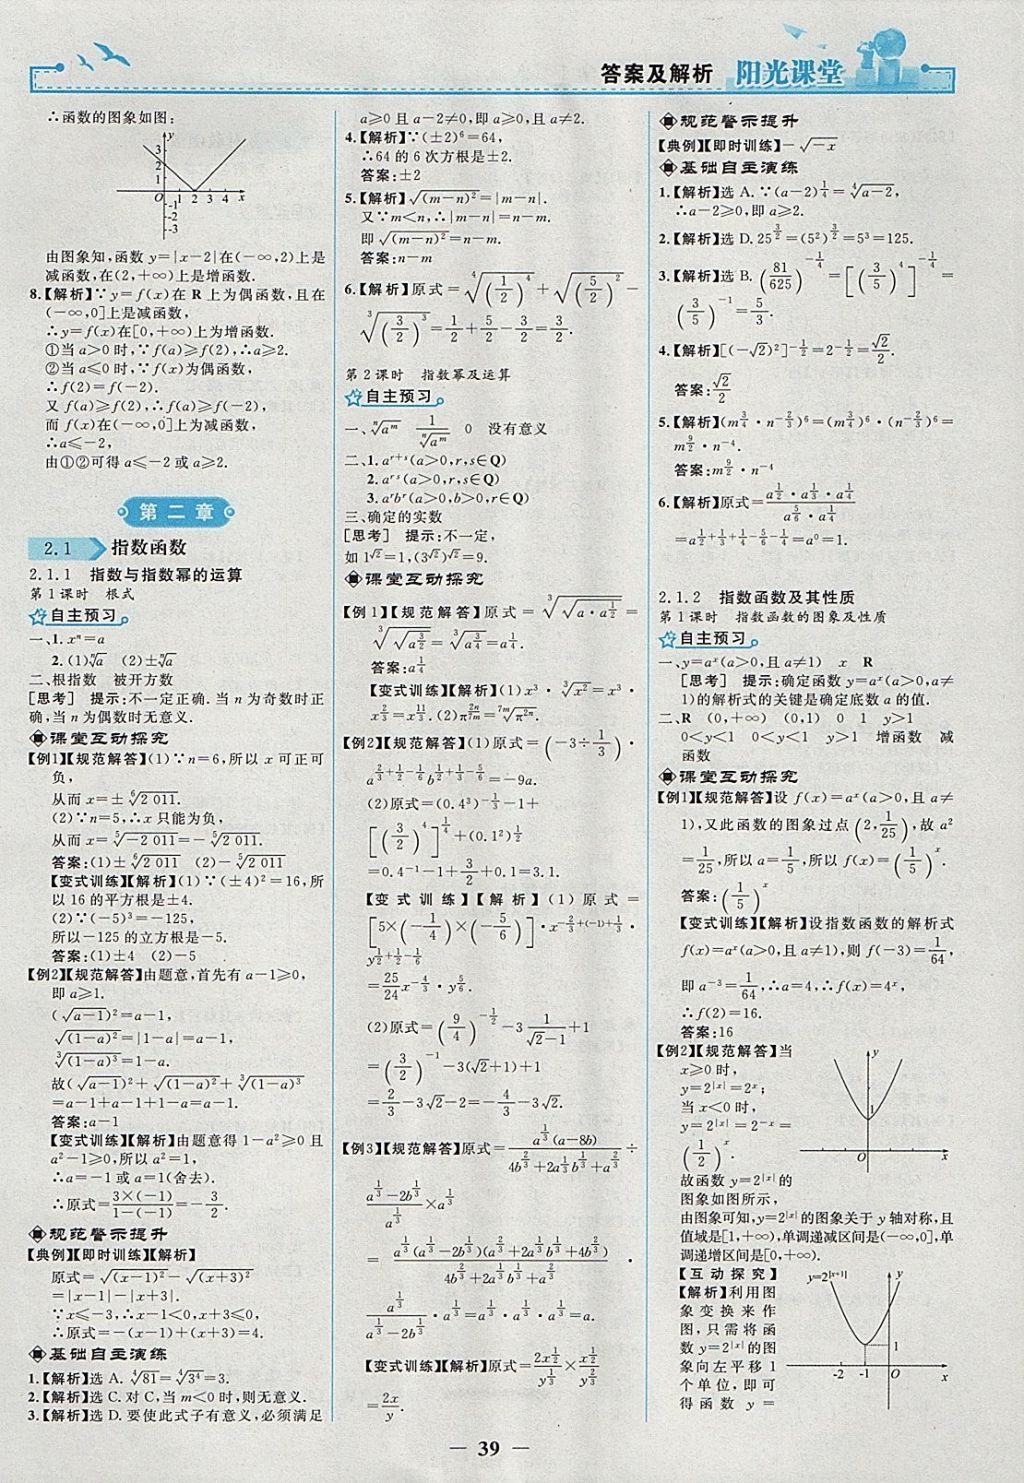 答案及解析 阳光课堂
∴函数的图象如图:
y
3
2
1
O 1 2 3 4 x
-1
-2
-3
由图象知,函数 y=|x-2|在(-∞,2)上是
减函数,在(2,+∞)上是增函数.
8.【解析】∵y=f(x)在 R 上为偶函数,且在
(-∞,0]上是减函数,
∴y=f(x)在[0,+∞)上为增函数.
①当 a>0 时,∵f(a)≥f(2),∴a≥2.
②当 a≤0 时,∵f(x)为偶函数,
∴f(2)=f(-2).
又 f(a)≥f(2),∴f(a)≥f(-2),
而 f(x)在(-∞,0]上为减函数,
∴a≤-2,
由①②可得 a≤-2 或 a≥2.
第二章
2.1 指数函数
2.1.1 指数与指数幂的运算
第1课时 根式
自主预习
一、1.xⁿ=a
2.(1)ⁿ√a (2)±ⁿ√a
二、根指数 被开方数
[思考] 提示:不一定正确.当 n 为奇数时正
确,当 n 为偶数时无意义.
课堂互动探究
【例1】【规范解答】(1)∵n=6,所以 x 可正可
负,
从而 x=±⁶√2 011.
(2)∵n=5,∴x 只能为负,
从而 x=⁵√-2 011=-⁵√2 011.
答案:(1)±⁶√2 011 (2)-⁵√2 011
【变式训练】【解析】(1)∵(±4)²=16,所
以 16 的平方根是±4.
(2)∵(-5)³=-125,
所以-125 的立方根是-5.
答案:(1)±4 (2)-5
【例2】【规范解答】由题意,首先有 a-1≥0,
即 a≥1.
(√(a-1))²=a-1,
√((1-a)²)=|1-a|=a-1,
³√((1-a)³)=1-a.
故(√(a-1))²+√((1-a)²)+³√((1-a)³)
=a-1+a-1+1-a=a-1.
答案:a-1
【变式训练】【解析】由题意得 1-a²≥0 且
a²-1≥0,所以 a²=1,
∴a=-1 或 a=1(舍去).
∴原式=3×(-1)/(1-(-1))=-3/2.
规范警示提升
【典例】【即时训练】【解析】
原式=√((x-1)²)-√((x+3)²)
=|x-1|-|x+3|.
∵x≤-3,∴x-1<0,x+3≤0,
∴原式=-(x-1)+(x+3)=4.
基础自主演练
1.【解析】选 A.⁴√81=⁴√3⁴=3.
2.【解析】选 C.对 C,当 m<0 时,则无意义.
3.【解析】选 D.要使此式子有意义,必须满足
a≥0 且 a-2≠0,即 a≥0,且 a≠2.
4.【解析】∵(±2)⁶=64,
∴64 的 6 次方根是±2.
答案:±2
5.【解析】√((m-n)²)=|m-n|.
又∵m<n,∴|m-n|=n-m.
即√((m-n)²)=n-m.
答案:n-m
6.【解析】原式=⁴√((1/2)⁴)+√((5/2)²)-
³√((3/2)³)=1/2+5/2-3/2=3/2.
第2课时 指数幂及运算
自主预习
一、ⁿ√(aᵐ) 1/ⁿ√(aᵐ) 0 没有意义
二、1.a^(r+s)(a>0,r,s∈Q)
2.a^(rs)(a>0,r,s∈Q)
3.a^r b^r(a>0,b>0,r∈Q)
三、确定的实数
[思考] 提示:不一定,
如 1^√2=1,(3^√2)^√2=9.
课堂互动探究
【例1】【规范解答】原式=³√(√(a·a^(1/2)))=
³√(√(a^(3/2)))=³√(a^(3/4))=a^(1/4).
答案:a^(1/4)
【变式训练】【解析】(1)x³·³√(x²)=x³·
x^(2/3)=x^(11/3).(2)π^(2n/7m)=⁷ᵐ√(π²ⁿ).
【例2】【规范解答】(1)原式=(-3÷1/3)·
a^(2/3+1/2-1/6)b^(1/2+1/3-5/6)=-9a.
(2)原式=(0.4³)^(-1/3)-1+
[(3/2)⁴]^(1/4)+(0.1²)^(1/2)
=0.4⁻¹-1+3/2+0.1=3.1.
【变式训练】【解析】(1)原式=
[5×(-1/4)×(-5/6)]·x^(-2/3+(-1)+1/3)·
y^(1/2+1/6)
=25/24 x^(-4/3)·y^(2/3).
(2)原式=(9/4)^(-1/2)-3 1/(√2-1)+1
=(3/2)⁻¹-3(√2+1)+1
=2/3-3√2-2=-4/3-3√2.
【例3】【规范解答】原式=a^(1/3)(a-8b)/(4b^(2/3)+2a^(1/3)b^(1/3)+a^(2/3))÷
(a^(1/3)-2b^(1/3))/a^(1/3)×a^(1/3)
=a^(1/3)(a^(1/3)-2b^(1/3))(a^(2/3)+2a^(1/3)b^(1/3)+4b^(2/3))/(4b^(2/3)+2a^(1/3)b^(1/3)+a^(2/3))·
a^(1/3)/(a^(1/3)-2b^(1/3))·a^(1/3)=a^(1/3)·a^(1/3)·a^(1/3)=a.
【变式训练】【解析】原式=2x^(1/2)/y^(1/3)×x^(1/2)/y^(2/3)
=2x/y.
规范警示提升
【典例】【即时训练】-√(-x)
基础自主演练
1.【解析】选 A.∵(a-2)^(1/4)=⁴√(a-2),
∴a-2≥0,即 a≥2.
2.【解析】选 D.25^(3/2)=(5²)^(3/2)=5³=125.
3.【解析】选 B.(81/625)^(-1/4)=[(3/5)⁴]^(-1/4)=
(3/5)⁻¹=5/3.
4.【解析】[(-√2)²]^(-1/2)=2^(-1/2)=√2/2.
答案:√2/2
5.【解析】(m^(3/4)·n^(-2/3))⁶=(m^(3/4))⁶·(n^(-2/3))⁶=
m^(9/2)·n⁻⁴.
答案:m^(9/2)·n⁻⁴
6.【解析】原式=a^(1/2)·a^(1/3)·a^(1/4)/(a^(5/6)·a^(1/4))
=a^(1/2+1/3+1/4-5/6-1/4)=a⁰=1.
2.1.2 指数函数及其性质
第1课时 指数函数的图象及性质
自主预习
一、y=aˣ(a>0,且 a≠1) x R
[思考] 提示:确定函数 y=aˣ(a>0,a≠
1)的解析式的关键是确定底数 a 的值.
二、R (0,+∞) (0,1) 0 1 y>1
0<y<1 0<y<1 y>1 增函数 减
函数
课堂互动探究
【例1】【规范解答】设 f(x)=aˣ(a>0,且 a≠
1),又此函数的图象过点(2,1/25),故 a²
=1/25,所以 a=1/5,所以 f(x)=(1/5)ˣ.
答案:(1/5)ˣ
【变式训练】【解析】设指数函数的解析式
f(x)=aˣ(a>0,且 a≠1),则 f(-3)=1/64,
即 a⁻³=1/64,∴a=4,∴f(x)=4ˣ,
∴f(2)=16.
答案:16
【例2】【规范解答】当
x≥0时,
y=2^|x|=2ˣ;
当 x<0时,
y=2^|x|=2⁻ˣ=
(1/2)ˣ.
y
1
O x
故函数 y=2^|x|的
图象如图所示,
由图象可知,y=2^|x|的图象关于 y 轴对称,且
值域是[1,+∞),单调递减区间是(-∞,0],单
调递增区间是[0,+∞).
【互动探究】
【解析】利用图
象变换来作
图,只需将函
数 y=2^|x|的图
象向左平移 1
个单位,即可
得函数 y=
y=2^|x+1|
y
1
-2 -1 O x
39